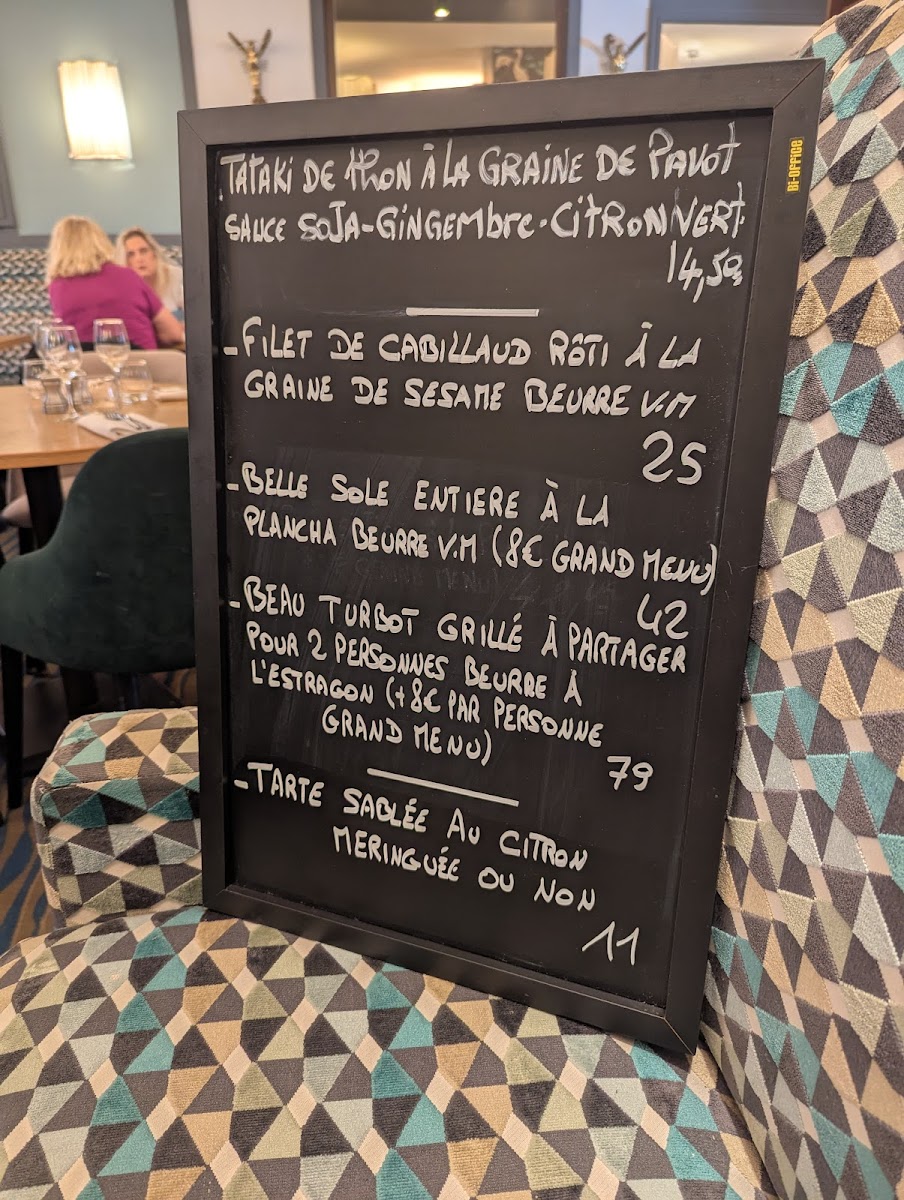 TATAKI DE tHON À LA GRAINE DE PAVOT
SAUCE SOJA-GINGEMBRE-CITRON VERT
14,50
- FILET DE CABILLAUD RÔTI À LA
GRAINE DE SESAME BEURRE V.M
25
- BELLE SOLE ENTIERE À LA
PLANCHA BEURRE V.M (8€ GRAND MENU)
42
- BEAU TURBOT GRILLÉ À PARTAGER
POUR 2 PERSONNES BEURRE À
L'ESTRAGON (+8€ PAR PERSONNE
GRAND MENU)
79
- TARTE SABLÉE AU CITRON
MERINGUÉE OU NON
11
BI-OFFICE